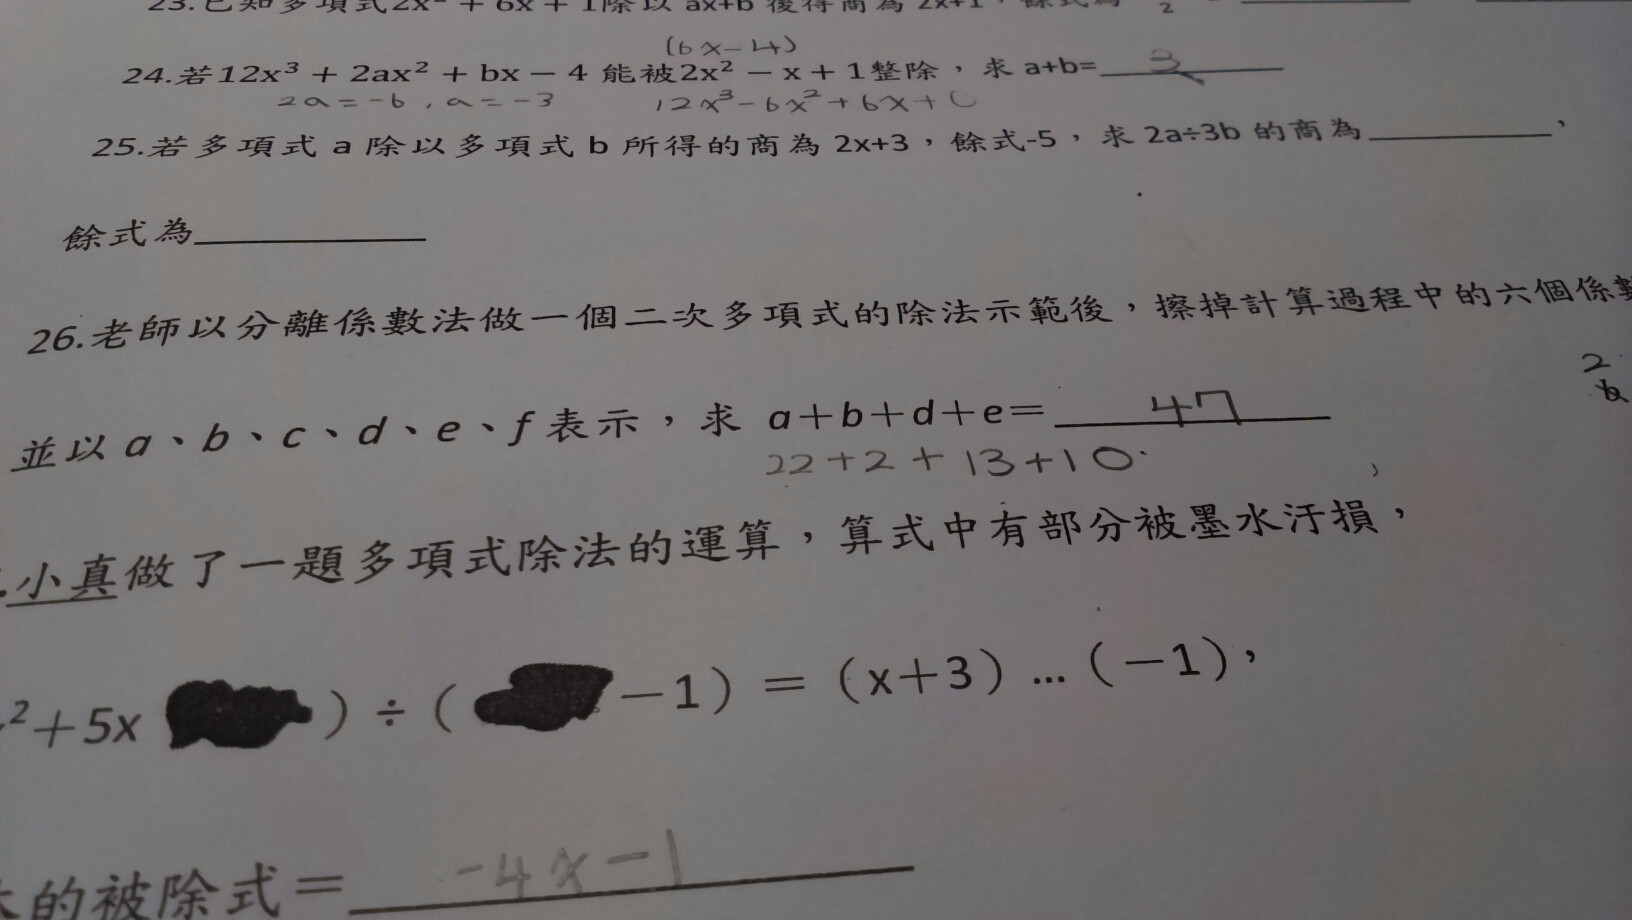 23.已知多項式2x² + 6x + 1除以 ax+b 後得商為 2x+1，餘式為 2
(6x-4)
24.若12x³ + 2ax² + bx − 4 能被2x² − x + 1整除，求 a+b= 3
2a=-6，a=-3 12x³-6x²+6x+0
25.若多項式 a 除以多項式 b 所得的商為 2x+3，餘式-5，求 2a÷3b 的商為，
餘式為
26.老師以分離係數法做一個二次多項式的除法示範後，擦掉計算過程中的六個係數
2
並以 a、b、c、d、e、f 表示，求 a+b+d+e= 47
22+2+13+10
小真做了一題多項式除法的運算，算式中有部分被墨水汙損，
²+5x ）÷（ −1）=（x+3）…（−1），
的被除式= -4x-1